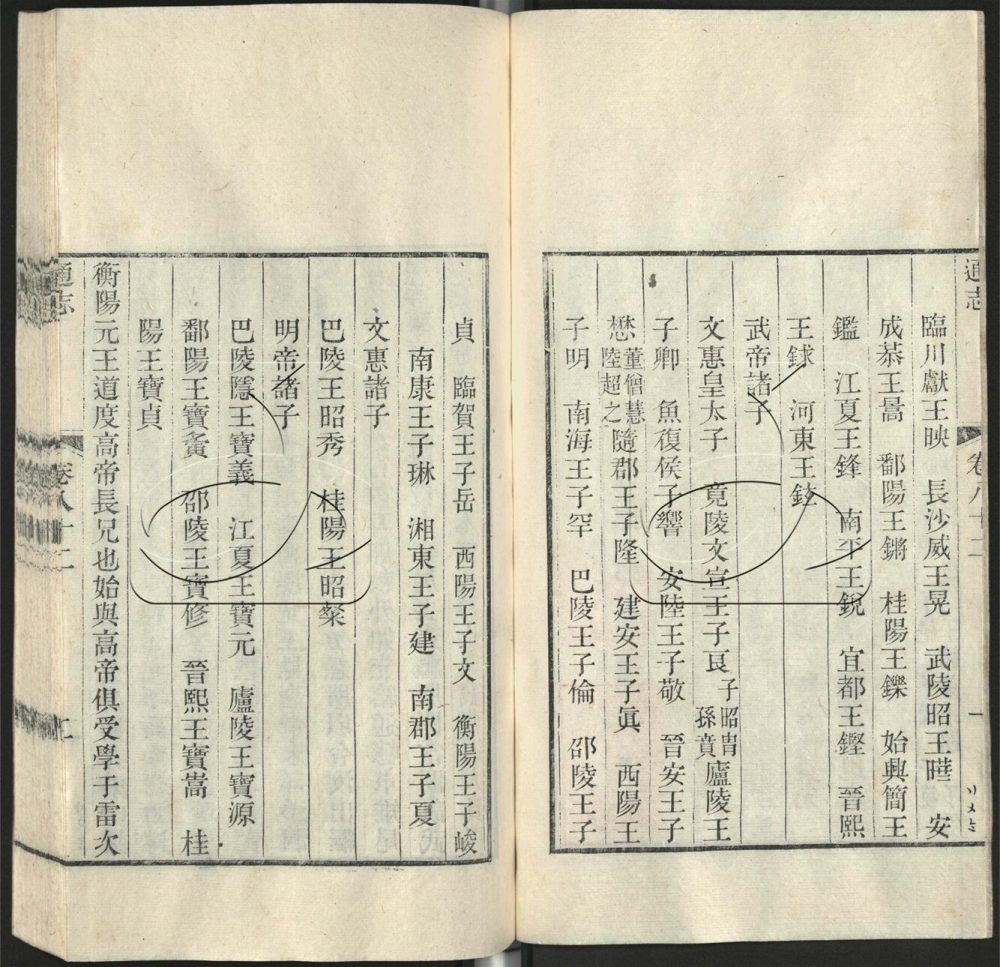 通志
卷八十二
一
臨川獻王映　長沙威王晃　武陵昭王曅　安
成恭王暠　鄱陽王鏘　桂陽王鑠　始興簡王
鑑　江夏王鋒　南平王銳　宜都王鏗　晉熙
王銶　河東王鉉
武帝諸子
文惠皇太子　竟陵文宣王子良 子昭胄 孫賁 廬陵王
子卿　魚復侯子響　安陸王子敬　晉安王子
懋 董僧慧 陸超之 隨郡王子隆　建安王子真　西陽王
子明　南海王子罕　巴陵王子倫　邵陵王子
貞　臨賀王子岳　西陽王子文　衡陽王子峻
南康王子琳　湘東王子建　南郡王子夏
文惠諸子
巴陵王昭秀　桂陽王昭粲
明帝諸子
巴陵隱王寶義　江夏王寶元　廬陵王寶源
鄱陽王寶夤　邵陵王寶修　晉熙王寶嵩　桂
陽王寶貞
衡陽元王道度高帝長兄也始與高帝俱受學于雷次
通志
卷八十二